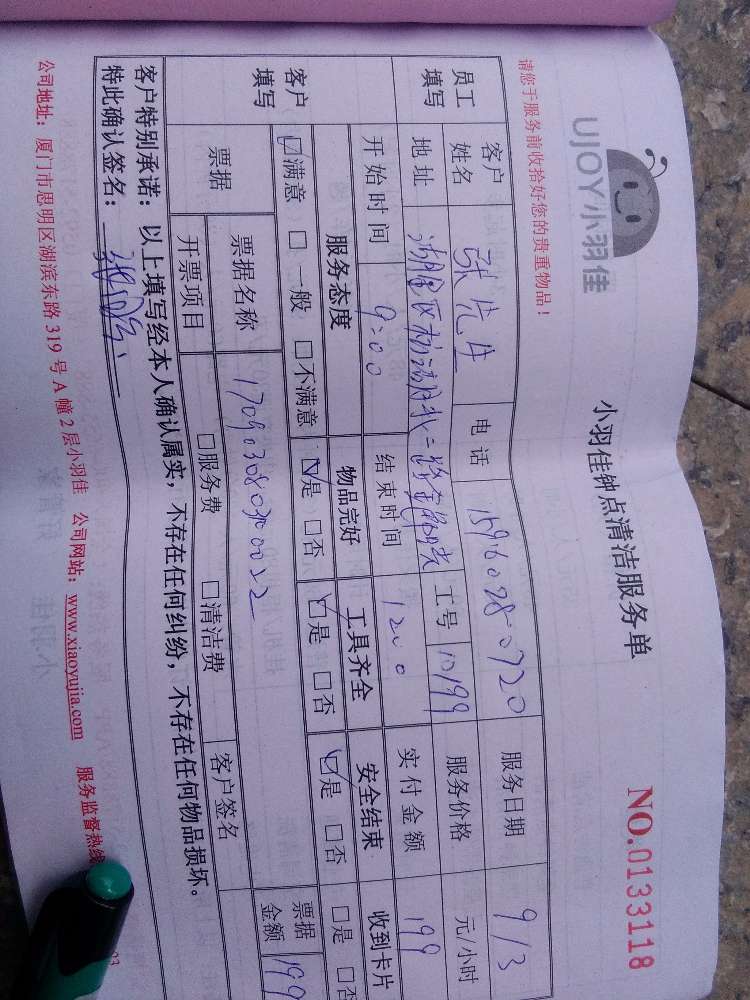 UJOY小羽佳
小羽佳钟点清洁服务单
NO.0133118
请您于服务前收拾好您的贵重物品！
员工填写 客户姓名 电话 15960280720 服务日期 9/3
地址 工号 10199 服务价格 元/小时
开始时间 9:00 结束时间 1200 实付金额 199
客户填写 服务态度 物品完好 工具齐全 安全结束 收到卡片
☑满意 □一般 □不满意 ☑是 □否 ☑是 □否 ☑是 □否 □是 □否
票据 票据名称 客户签名 票据金额 199
开票项目 □服务费 □清洁费
客户特别承诺：以上填写经本人确认属实，不存在任何纠纷，不存在任何物品损坏。
特此确认签名：
公司地址：厦门市思明区湖滨东路 319 号 A 幢 2 层小羽佳 公司网站：www.xiaoyujia.com 服务监督热线